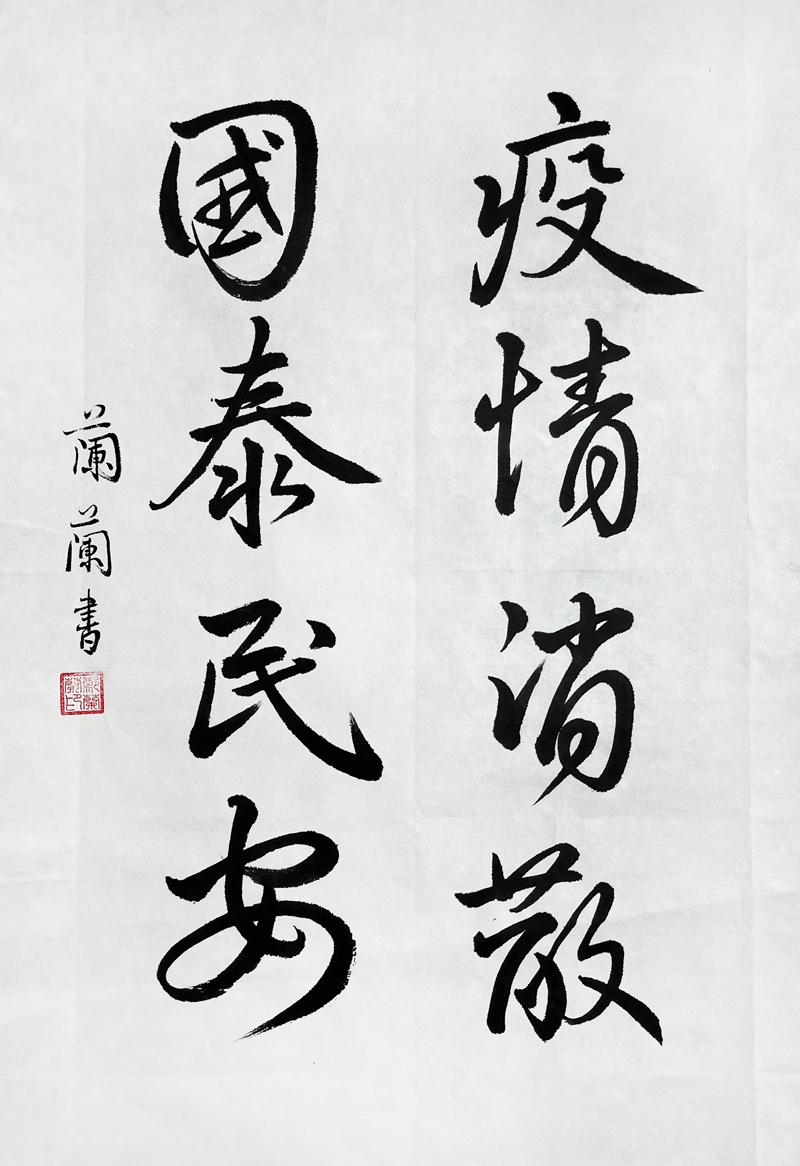 疫情消散
國泰民安
蘭蘭書